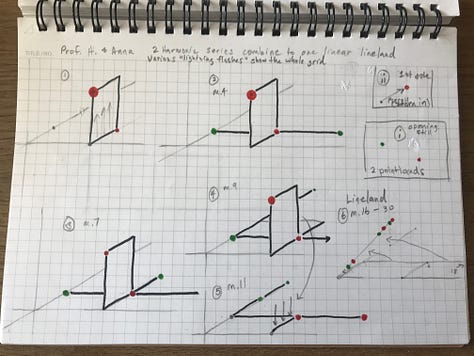 Prof. H. & Anna 2 Harmonic series combine to one linear lineland
Various "lightning flashes" show the whole grid
①
③
m.4
ii
1st ode
i
opening still
2 pointlands
m.7
④
m.9
Lineland
⑥ m.16 - 30
⑤
m.11